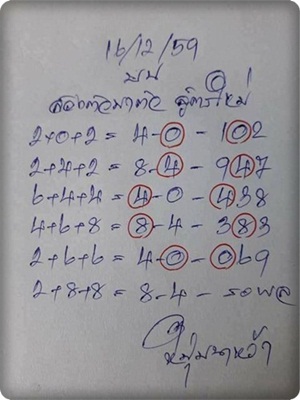 16/12/59
บน
สองตัวมาตัว สูตรใหม่
2+0+2 = 4-0 - 102
2+4+2 = 8-4 - 947
6+4+4 = 4-0 - 438
4+6+8 = 8-4 - 383
2+6+6 = 4-0 - 069
2+8+8 = 8-4 - รอผล